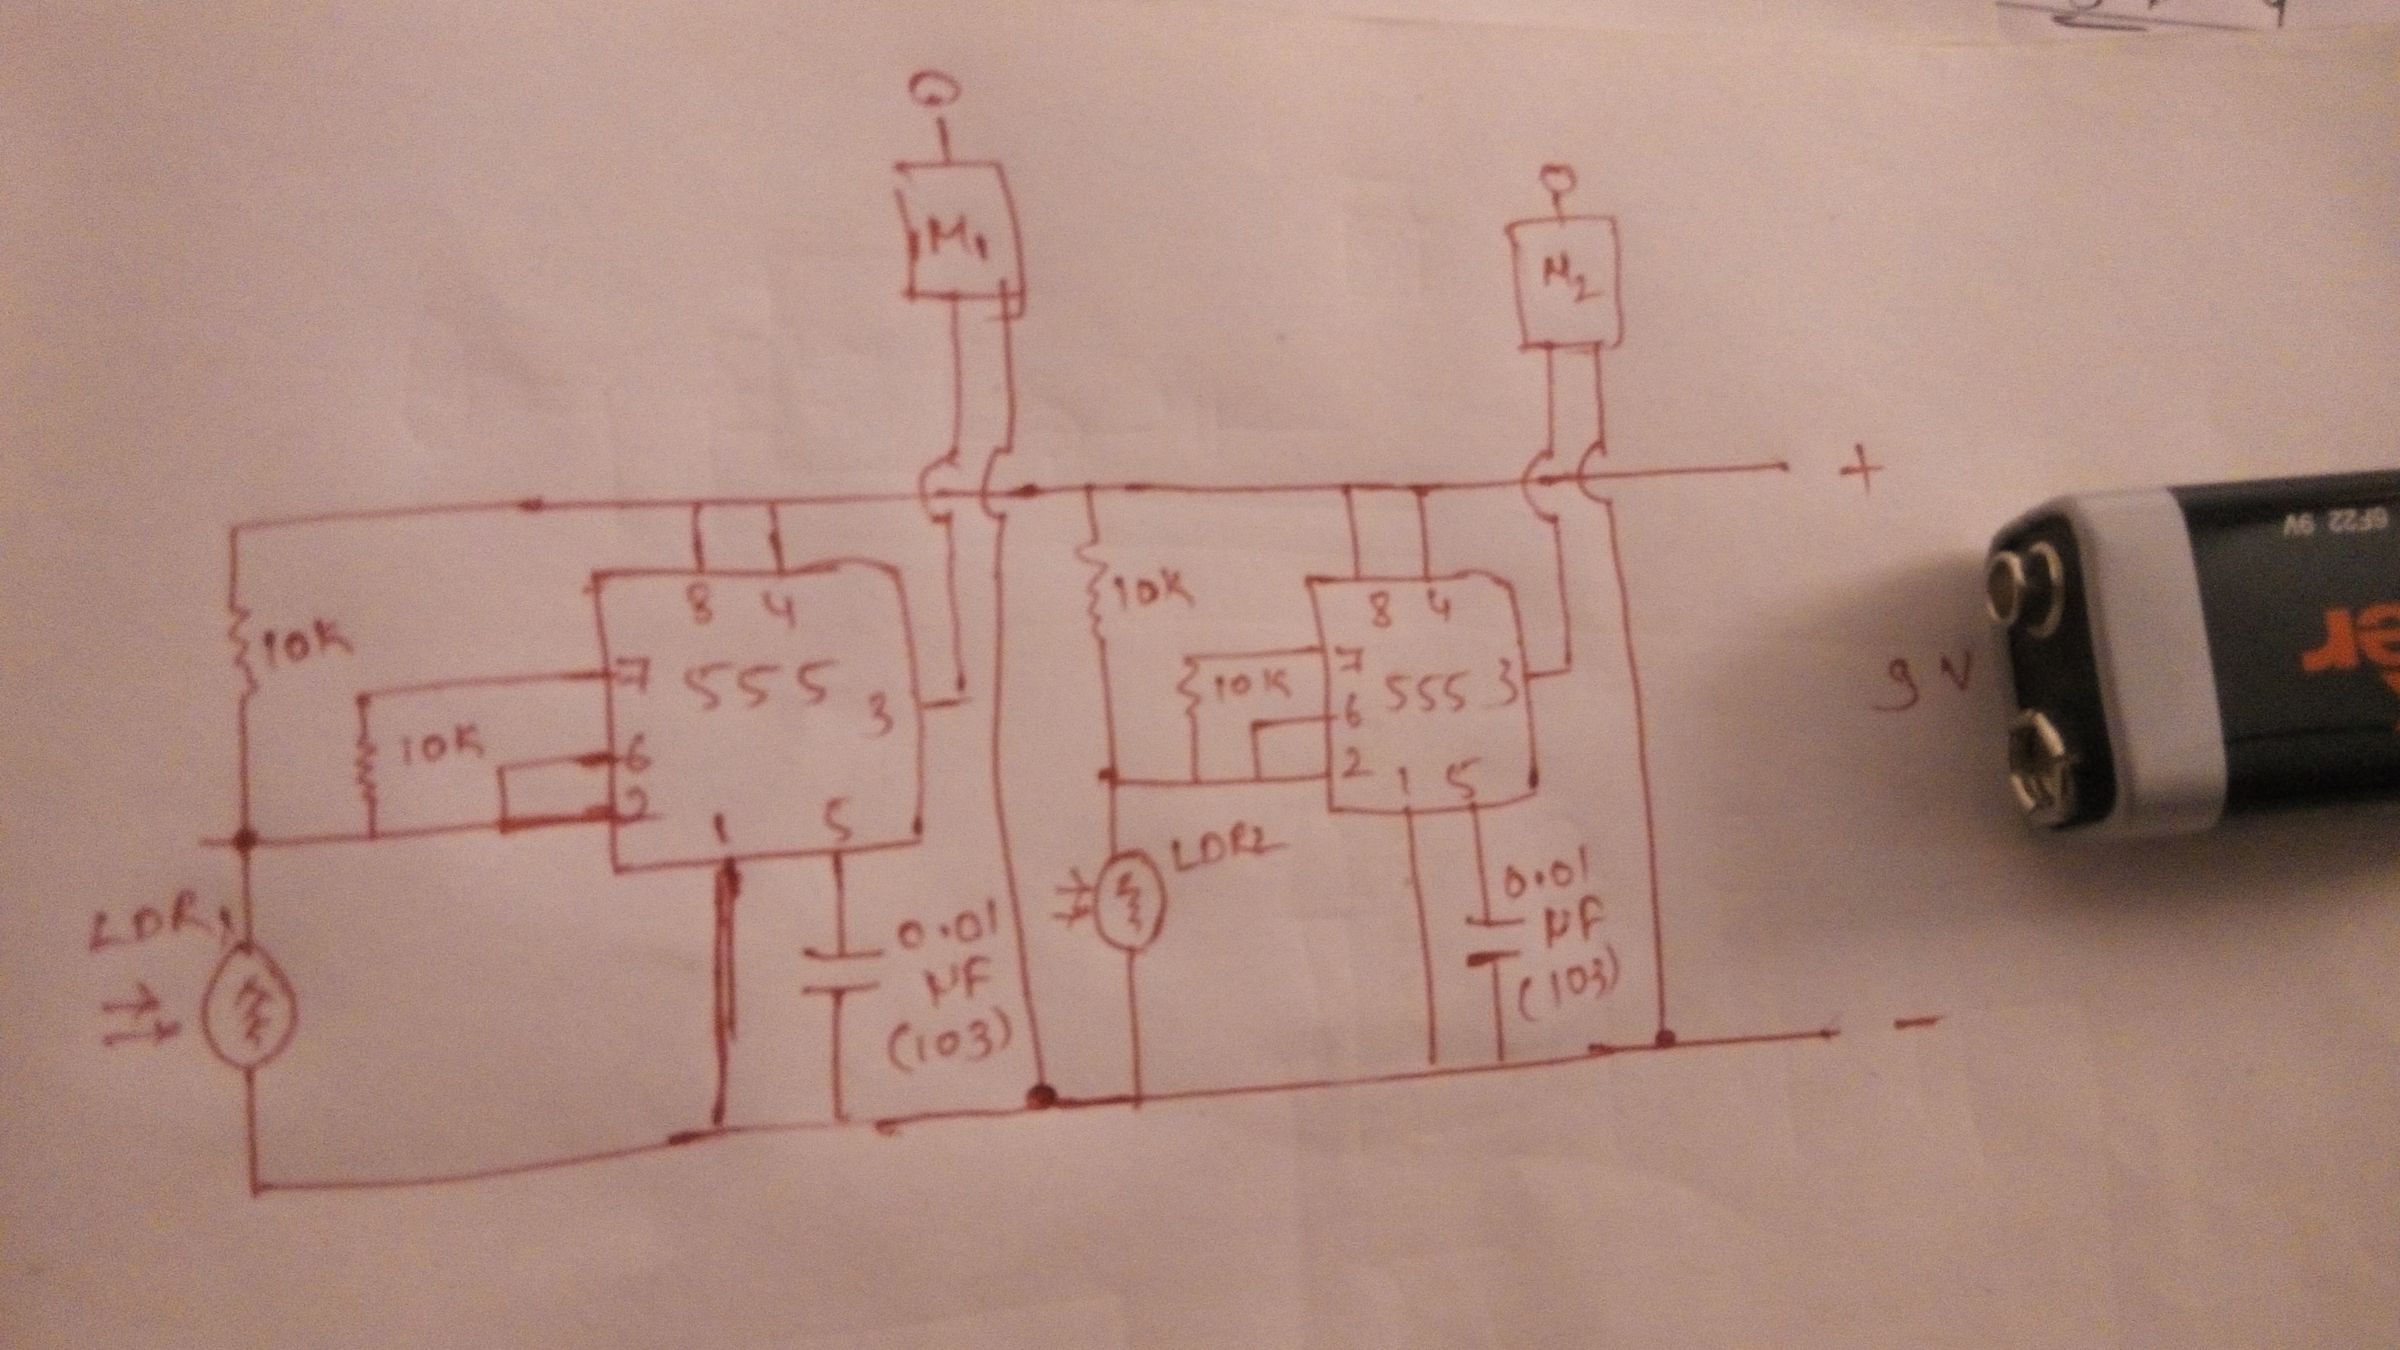 M1
M2
+
10K
8 4
7
555
3
10K
6
2
1 5
LDR1
0.01
µF
(103)
10K
8 4
7
10K
555
3
6
2
1 5
LDR2
0.01
µF
(103)
9V
-
6F22 9V
er